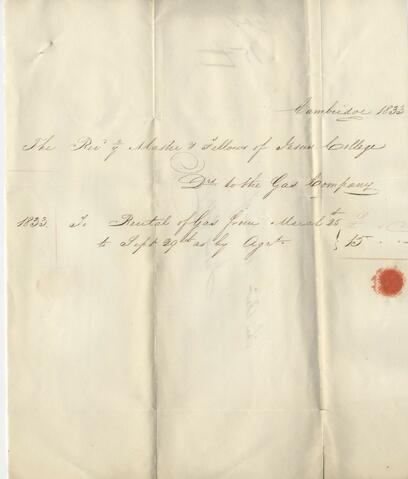 Cambridge 1833
The Revd ye Master & Fellows of Jesus College
Drs to the Gas Company
1833 To Rental of Gas from March 25th
to Sept 29th as by Agrt } 15 . .